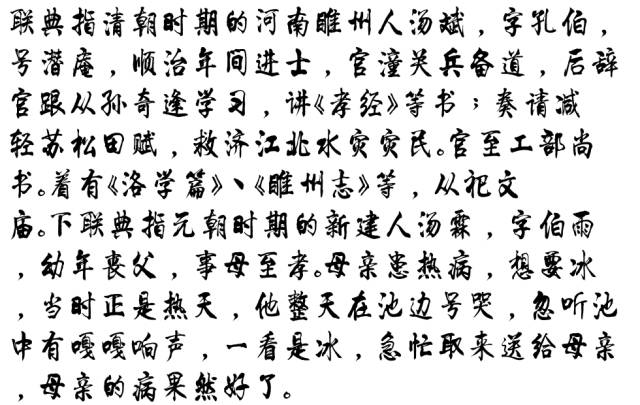 联典指清朝时期的河南睢州人汤斌，字孔伯，
号潜庵，顺治年间进士，官潼关兵备道，后辞
官跟从孙奇逢学习，讲《孝经》等书；奏请减
轻苏松田赋，救济江北水灾灾民。官至工部尚
书。着有《洛学篇》、《睢州志》等，从祀文
庙。下联典指元朝时期的新建人汤霖，字伯雨
，幼年丧父，事母至孝。母亲患热病，想要冰
，当时正是热天，他整天在池边号哭，忽听池
中有嘎嘎响声，一看是冰，急忙取来送给母亲
，母亲的病果然好了。